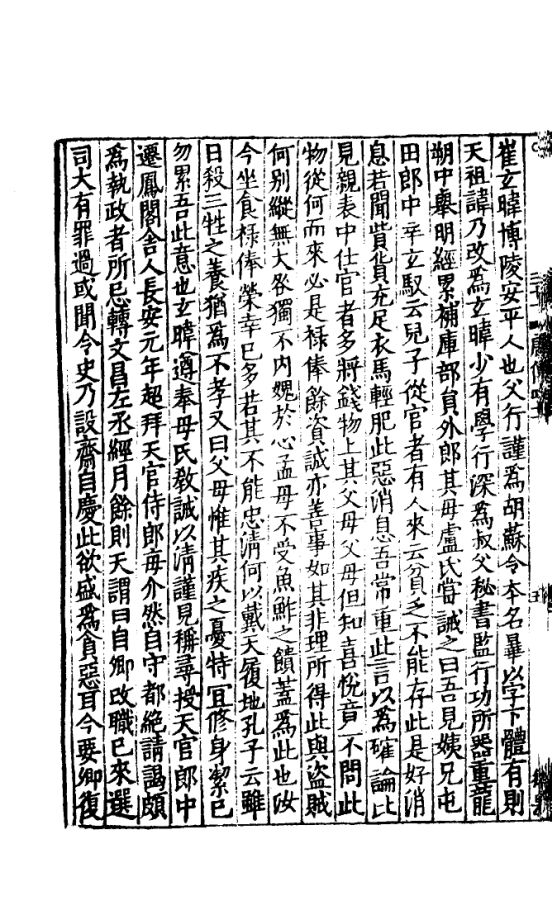 崔玄暐博陵安平人也父行謹為胡蘇令本名曅以字下體有則
天祖諱乃改為玄暐少有學行深為叔父秘書監行功所器重龍
朔中舉明經累補庫部員外郎其母盧氏嘗誡之曰吾見姨兄屯
田郎中辛玄馭云兒子從官者有人來云貧乏不能存此是好消
息若聞貲貨充足衣馬輕肥此惡消息吾常重此言以為確論比
見親表中仕官者多將錢物上其父母父母但知喜悅竟不問此
物從何而來必是祿俸餘資誠亦善事如其非理所得此與盜賊
何別縱無大咎獨不內媿於心孟母不受魚鮓之饋蓋為此也汝
今坐食祿俸榮幸已多若其不能忠清何以戴天履地孔子云雖
日殺三牲之養猶為不孝又曰父母惟其疾之憂特冝修身絜已
勿累吾此意也玄暐遵奉母氏教誡以清謹見稱尋授天官郎中
遷鳳閣舍人長安元年超拜天官侍郎每介然自守都絕請謁頗
為執政者所忌轉文昌左丞經月餘則天謂曰自卿改職已來選
司大有罪過或聞令史乃設齋自慶此欲盛為貪惡耳今要卿復